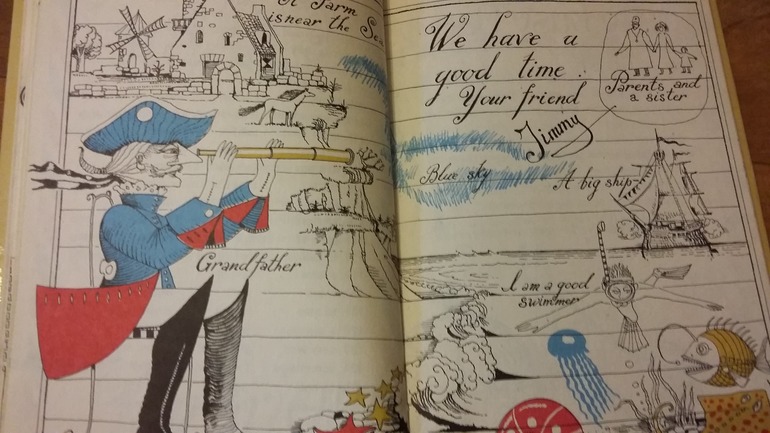 A Farm
is near the Sea
Grandfather
We have a
good time :
Your friend
Jimmy
Parents and
a sister
Blue sky
A big ship
I am a good
swimmer